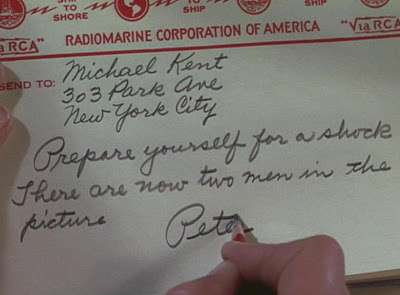 SHIP
TO
SHORE
TO
SHIP
SHIP
Via RCA"
RADIOMARINE CORPORATION OF AMERICA
"Via RCA"
SEND TO:
Michael Kent
303 Park Ave
New York City
Prepare yourself for a shock
There are now two men in the
picture
Pete